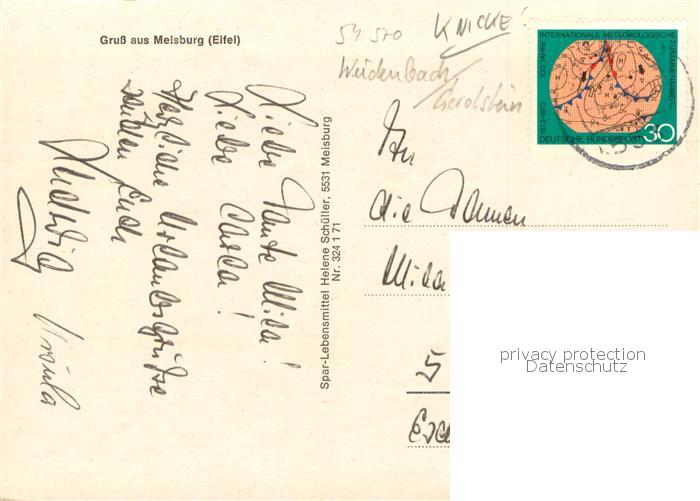 Gruß aus Meisburg (Eifel)
54570
KNICKE!
Weidenbach/
Gerolstein
100 JAHRE INTERNATIONALE METEOROLOGISCHE ZUSAMMENARBEIT
1873-1973
DEUTSCHE BUNDESPOST 30
Liebe Tante Mila!
Liebe Carla!
Herzliche Urlaubsgrüße
senden Euch
Hedwig
Ursula
Spar-Lebensmittel Helene Schüller, 5531 Meisburg
Nr. 324 1 71
An
die Damen
Mila
5
privacy protection
Datenschutz